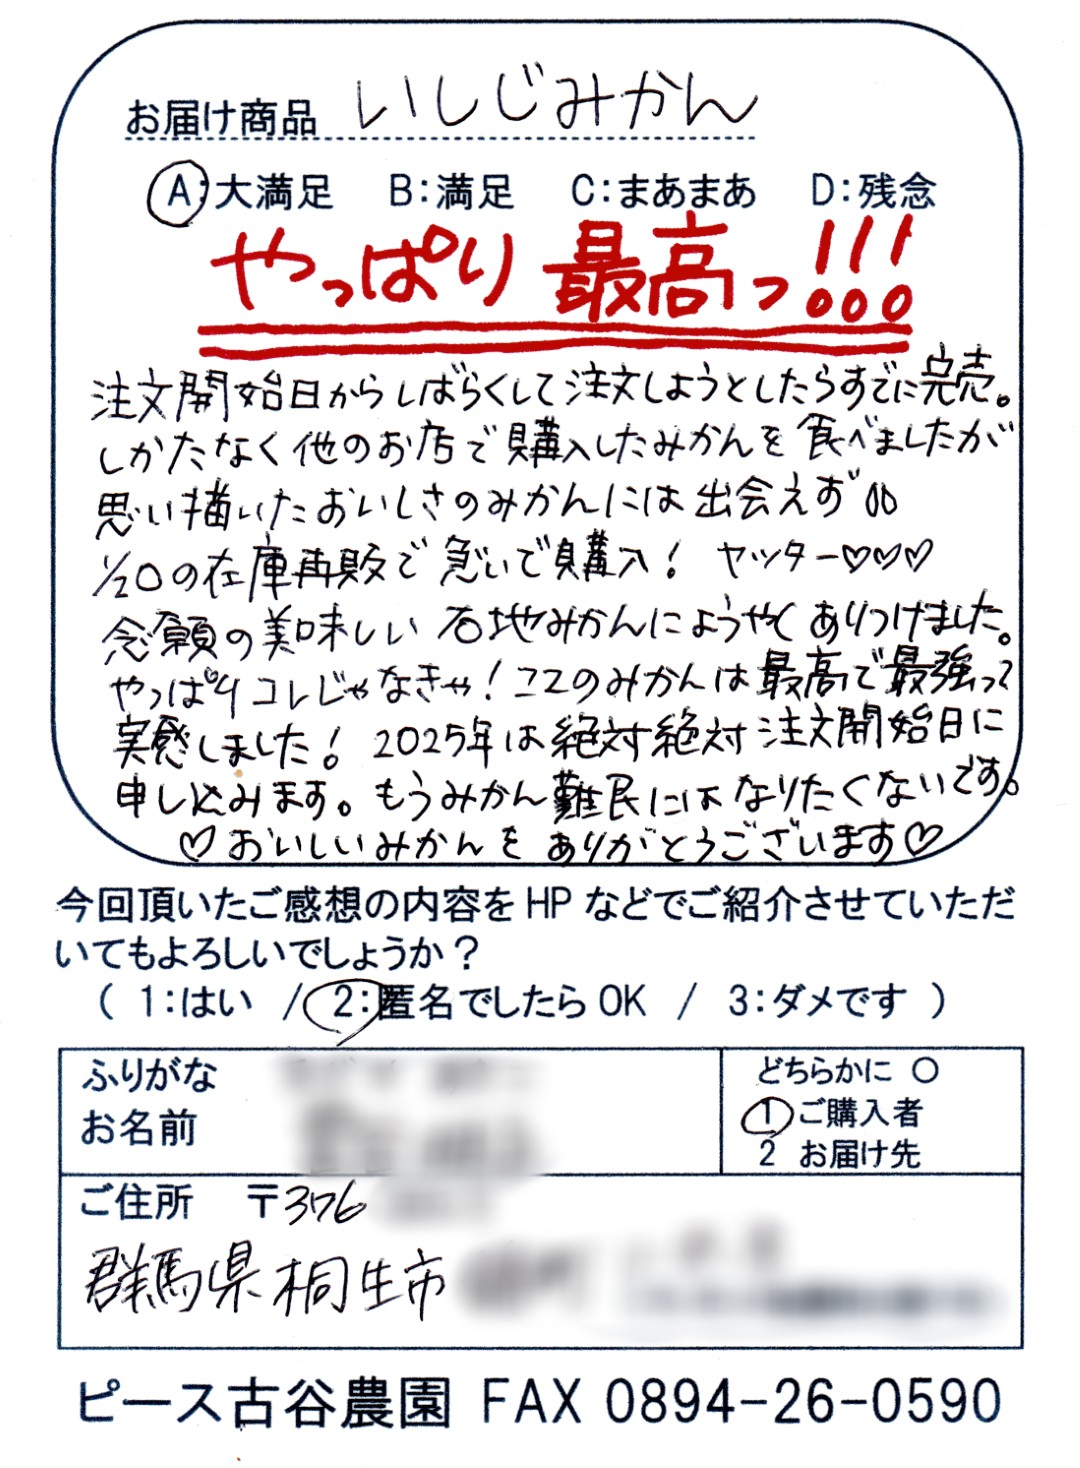 お届け商品 いしじみかん
A:大満足 B:満足 C:まあまあ D:残念
やっぱり最高っ!!!
注文開始日からしばらくして注文しようとしたらすでに完売。
しかたなく他のお店で購入したみかんを食べましたが
思い描いたおいしさのみかんには出会えず
1/20の在庫再販で急いで購入! ヤッター♡♡♡
念願の美味しい石地みかんにようやくありつけました。
やっぱりコレじゃなきゃ!ココのみかんは最高で最強って
実感しました! 2025年は絶対絶対注文開始日に
申し込みます。もうみかん難民にはなりたくないです。
♡おいしいみかんをありがとうございます♡
今回頂いたご感想の内容をHPなどでご紹介させていただ
いてもよろしいでしょうか?
( 1:はい / 2:匿名でしたらOK / 3:ダメです )
ふりがな
お名前
どちらかに ○
1 ご購入者
2 お届け先
ご住所 〒376
群馬県桐生市
ピース古谷農園 FAX 0894-26-0590